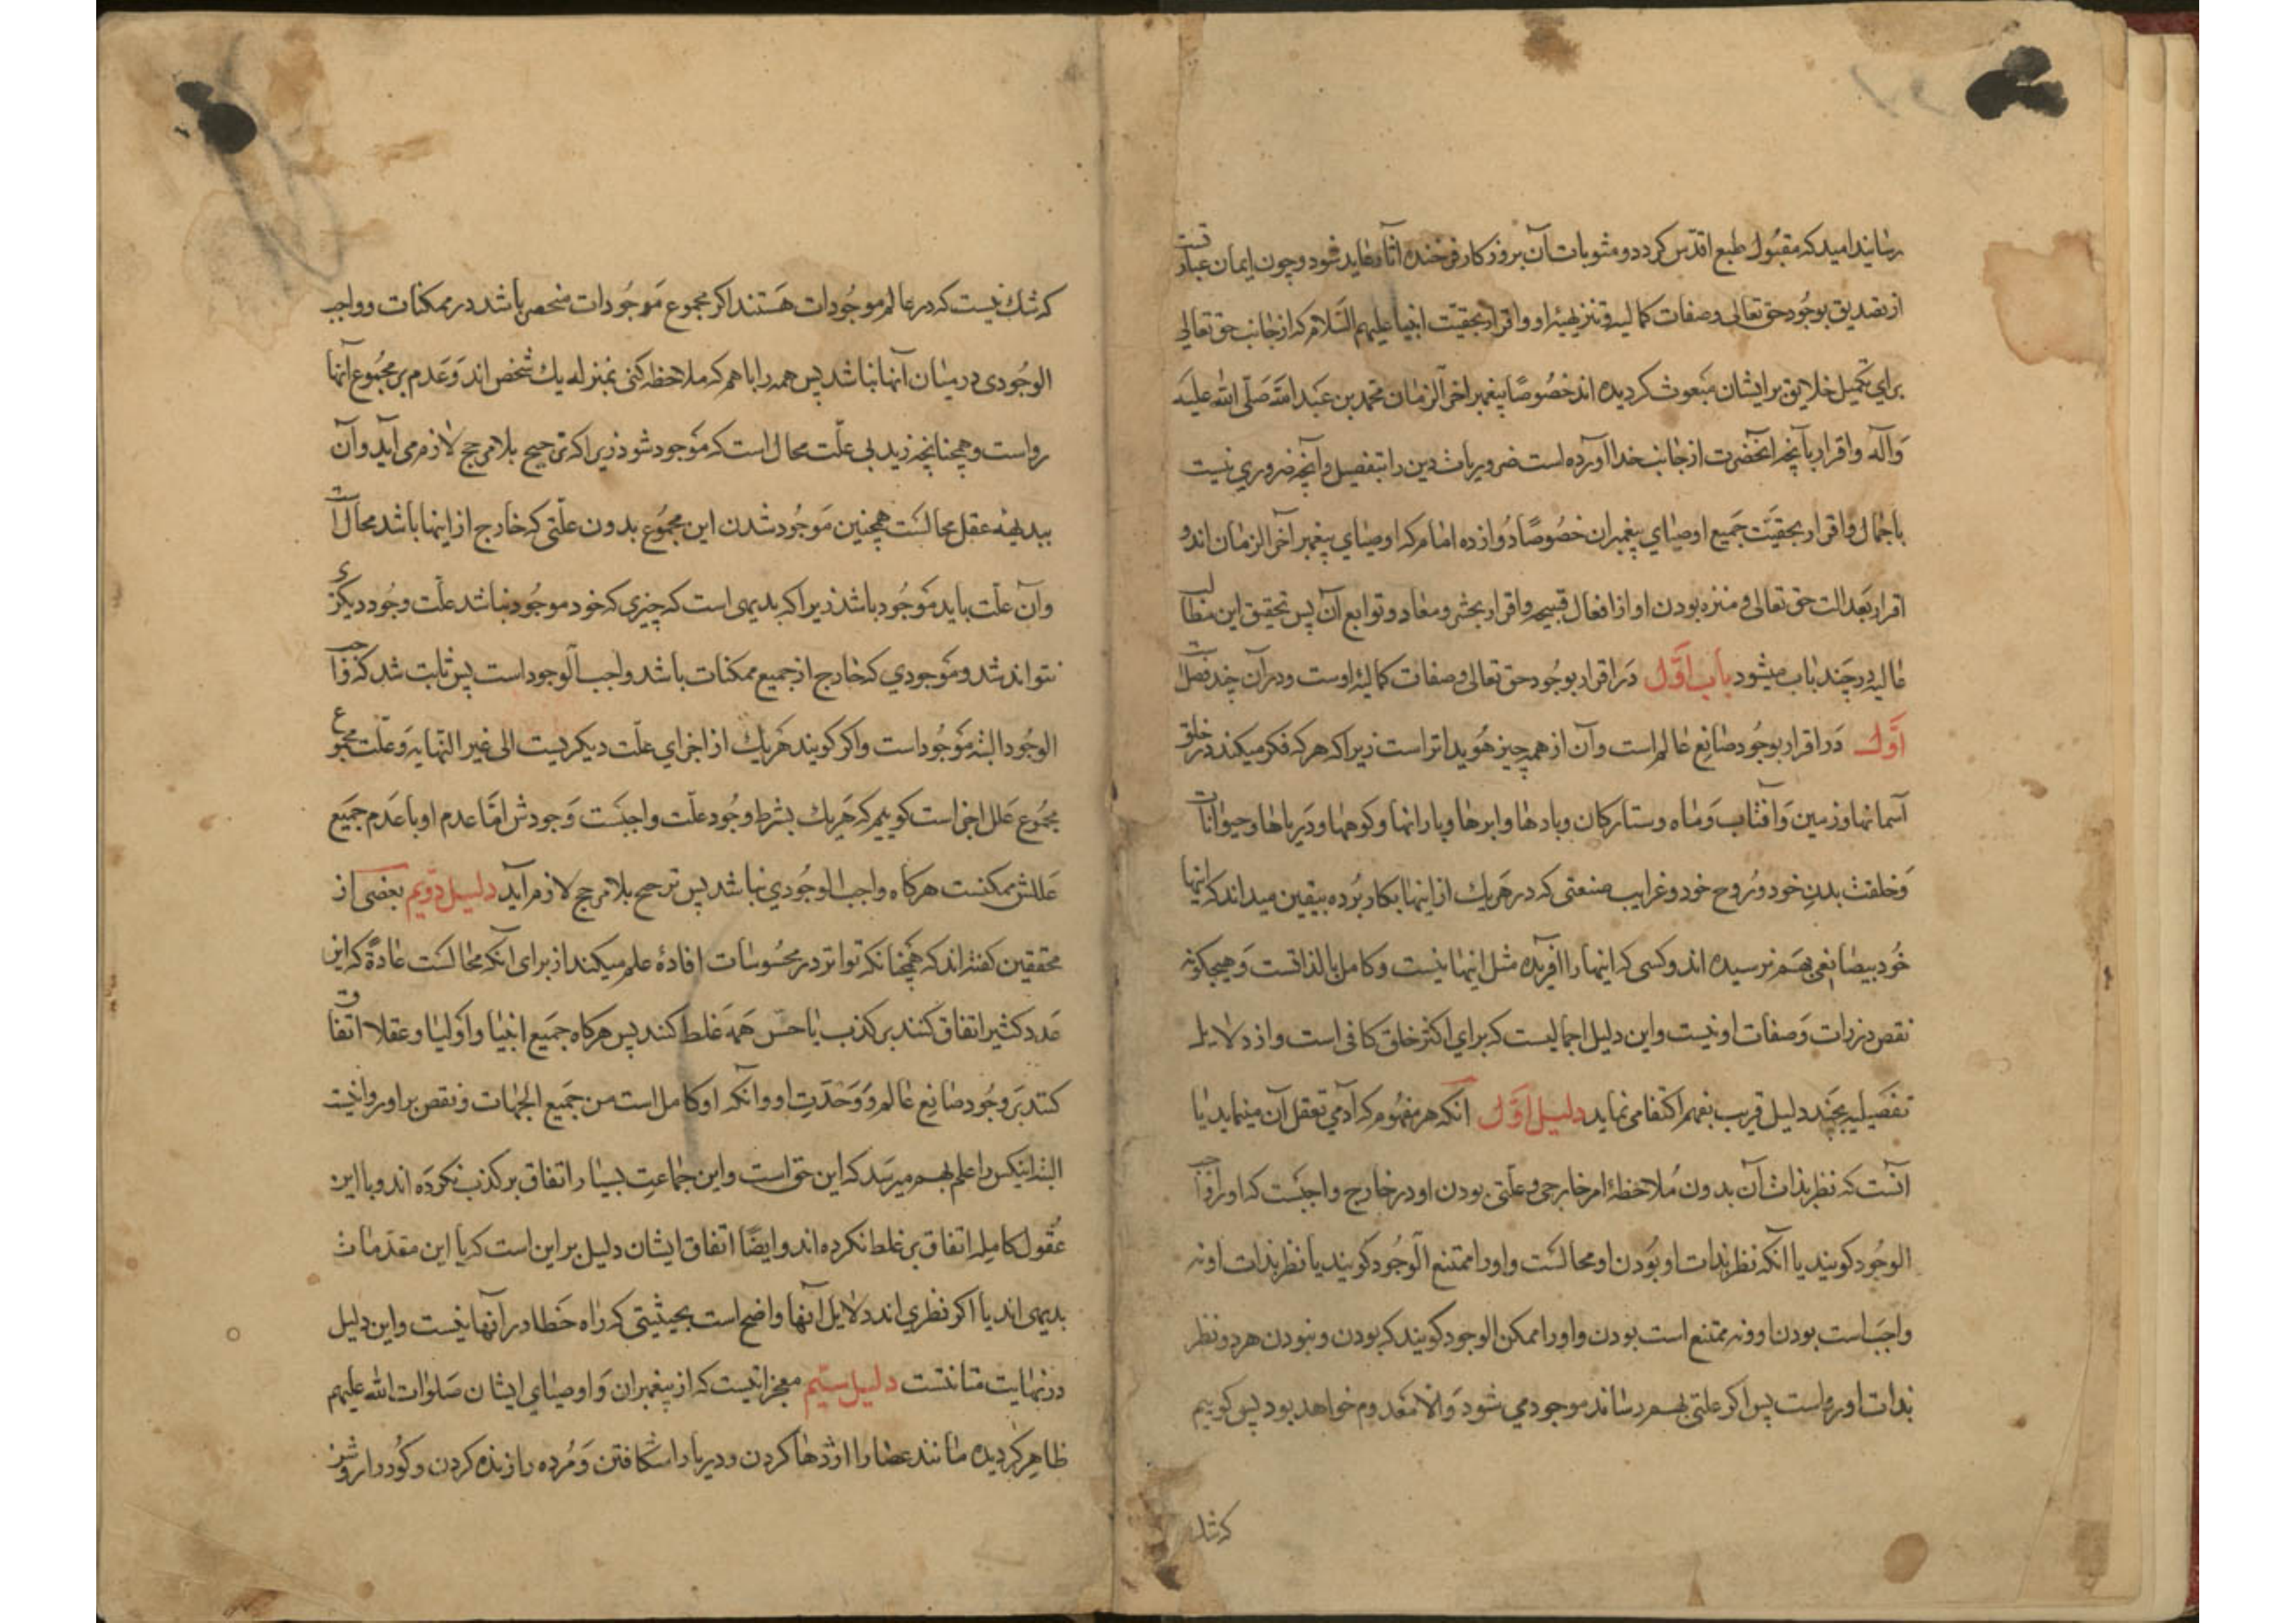 رسانید امید که مقبول طبع اقدس کردد و مثوبات آن بروزکار فرخنده آثار عاید شود و چون ایمان عبارتست
از تصدیق بوجود حق تعالی و صفات کمالیه و تنزیهیه او و اقرار بحقیت انبیا علیهم السلام که از جانب حق تعالی
برای تکمیل خلایق بر ایشان مبعوث کردیده اند خصوصًا پیغمبر اخر الزمان محمد بن عبد الله صلی الله علیه
و آله و اقرار بآنچه آنحضرت از جانب خدا آورده است ضروریات دین را بتفصیل و آنچه ضروری نیست
باجمال و اقرار بحقیت جمیع اوصیای پیغمبران خصوصًا دوازده امام که اوصیای پیغمبر آخر الزمان اند و
اقرار بعدالت حق تعالی و منزه بودن او از افعال قبیحه و اقرار بحشر و معاد و توابع آن پس تحقیق این مطالب
عالیه در چند باب میشود باب اوّل در اقرار بوجود حق تعالی و صفات کمالیهٔ اوست و در آن چند فصلست
اوّل در اقرار بوجود صانع عالم است و آن از همه چیز هویداتر است زیرا که هر که فکر میکند در خلق
آسمانها و زمین و آفتاب و ماه و ستارکان و بادها و ابرها و بارانها و کوهها و دریاها و حیوانات
و خلقت بدن خود و روح خود و غرایب صنعتی که در هریك از اینها بکار برده بیقین میداند که اینها
خود بیصانعی بهم نرسیده اند و کسی که اینها را آفریده مثل اینها نیست و کامل بالذاتست و هیچکونه
نقص در ذات و صفات او نیست و این دلیل اجمالیست که برای اکثر خلق کافی است و از دلایل
تفصیلیه بچند دلیل قریب بفهم اکتفا می نماید دلیل اوّل آنکه هر مفهوم که آدمی تعقل آن مینماید یا
آنست که نظر بذات آن بدون ملاحظهٔ امر خارجی و علتی بودن او در خارج واجبست که او را واجب
الوجود کویند یا آنکه نظر بذات او بودن او محالست و او را ممتنع الوجود کویند یا نظر بذات او نه
واجب است بودن او و نه ممتنع است بودن و او را ممکن الوجود کویند که بودن و نبودن هر دو نظر
بذات او رواست پس اکر علتی بهم رساند موجود می شود و الا معدوم خواهد بود پس کوییم
که شك
که شك نیست که در عالم موجودات هستند اکر مجموع موجودات منحصر باشد در ممکنات و واجب
الوجودی در میان آنها نباشد پس همه را با هم که ملاحظه کنی بمنزله یك شخص اند و عدم بر مجموع آنها
رواست و همچنانچه زید بی علّت محال است که موجود شود زیرا که ترجیح بلا مرجح لازم می آید و آن
ببدیهه عقل محالست همچنین موجود شدن این مجموع بدون علّتی که خارج از اینها باشد محال است
و آن علّت باید موجود باشد زیرا که بدیهی است که چیزی که خود موجود نباشد علّت وجود دیکری
نتواند شد و موجودی که خارج از جمیع ممکنات باشد واجب الوجود است پس ثابت شد که واجب
الوجود البته موجود است و اکر کویند هریك از اجزای علّت دیکریست الی غیر النهایه و علّت مجموع
مجموع علل اجزا است کوییم که هریك بشرط وجود علّت واجبست وجودش امّا عدم او با عدم جمیع
عللش ممکنست هرکاه واجب الوجودی نباشد پس ترجیح بلا مرجح لازم آید دلیل دوّیم بعضی از
محققین کفته اند که همچنانکه تواتر در محسوسات افادهٔ علم میکند از برای آنکه محالست عادةً که این
عدد کثیر اتفاق کنند بر کذب یا حسّ همه غلط کند پس هرکاه جمیع انبیا و اولیا و عقلا اتفاق
کنند بر وجود صانع عالم و وحدت او و آنکه او کامل است من جمیع الجهات و نقص بر او روا نیست
البته اینکس را علم بهم میرسد که این حق است و این جماعت بسیار اتفاق بر کذب نکرده اند و با این
عقول کامله اتفاق بر غلط نکرده اند و ایضًا اتفاق ایشان دلیل بر این است که یا این مقدمات
بدیهی اند یا اکر نظری اند دلایل آنها واضح است بحیثیتی که راه خطا در آنها نیست و این دلیل
در نهایت متانتست دلیل سیّم معجزاتیست که از پیغمبران و اوصیای ایشان صلوات الله علیهم
ظاهر کردیده مانند عصا را اژدها کردن و دریا را شکافتن و مرده را زنده کردن و کور را روشن